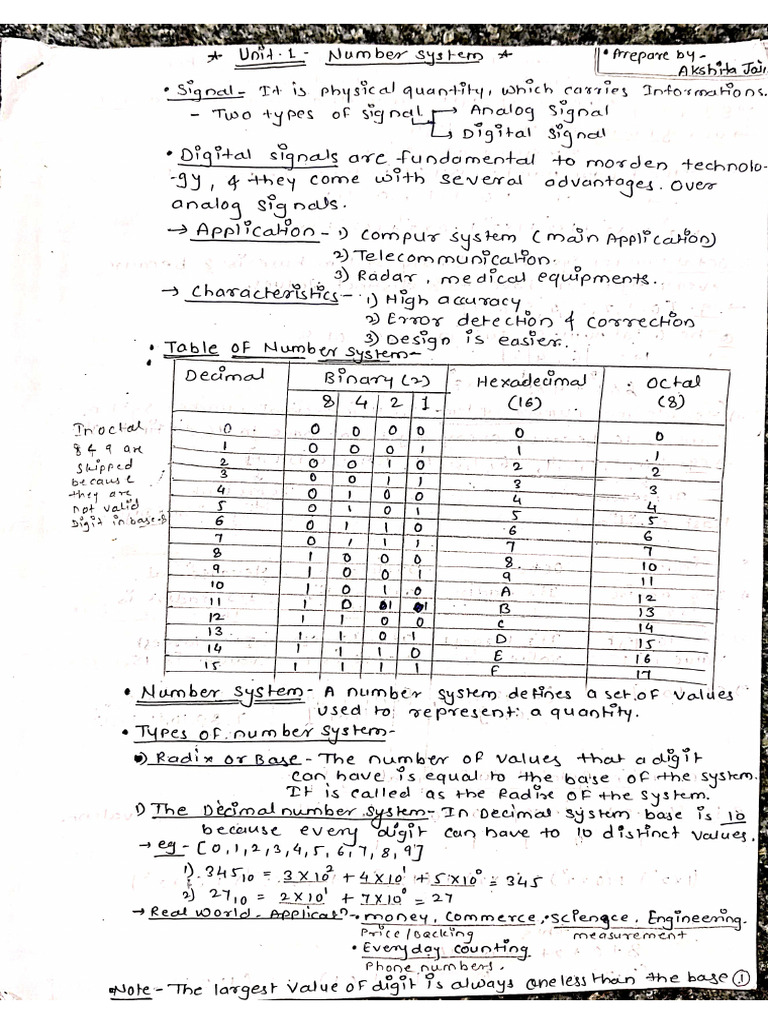 * Unit.1 - Number System *
• Prepare by -
Akshita Jain
• Signal - It is physical quantity, which carries Informations.
- Two types of signal → Analog Signal
↳ Digital Signal
• Digital signals are fundamental to morden technolo-
-gy, & they come with several advantages. over
analog signals.
→ Application - 1) Compur system (main Application)
2) Telecommunication.
3) Radar, medical equipments.
→ Characteristics - 1) High accuracy
2) Error detection & correction
3) Design is easier.
• Table of Number System -
Decimal Binary (2) Hexadecimal (16) Octal (8)
8 4 2 1
0 0 0 0 0 0 0
1 0 0 0 1 1 1
2 0 0 1 0 2 2
3 0 0 1 1 3 3
4 0 1 0 0 4 4
5 0 1 0 1 5 5
6 0 1 1 0 6 6
7 0 1 1 1 7 7
8 1 0 0 0 8 10
9 1 0 0 1 9 11
10 1 0 1 0 A 12
11 1 0 1 1 B 13
12 1 1 0 0 C 14
13 1 1 0 1 D 15
14 1 1 1 0 E 16
15 1 1 1 1 F 17
In octal
8 & 9 are
skipped
because
they are
not valid
Digit in base-8
• Number System - A number system defines a set of values
used to represent a quantity.
• Types of number system -
•) Radix or Base - The number of values that a digit
can have is equal to the base of the system.
It is called as the Radix of the system.
1) The Decimal number system - In Decimal system base is 10
because every digit can have to 10 distinct values.
→ eg - [0,1,2,3,4,5,6,7,8,9]
1) 345₁₀ = 3×10² + 4×10¹ + 5×10⁰ = 345
2) 27₁₀ = 2×10¹ + 7×10⁰ = 27
→ Real World Applicatⁿ - • money, commerce, • Sciengce, Engineering.
Price/Packing measurement
• Everyday counting
Phone numbers.
• Note - The largest value of digit is always one less than the base ①